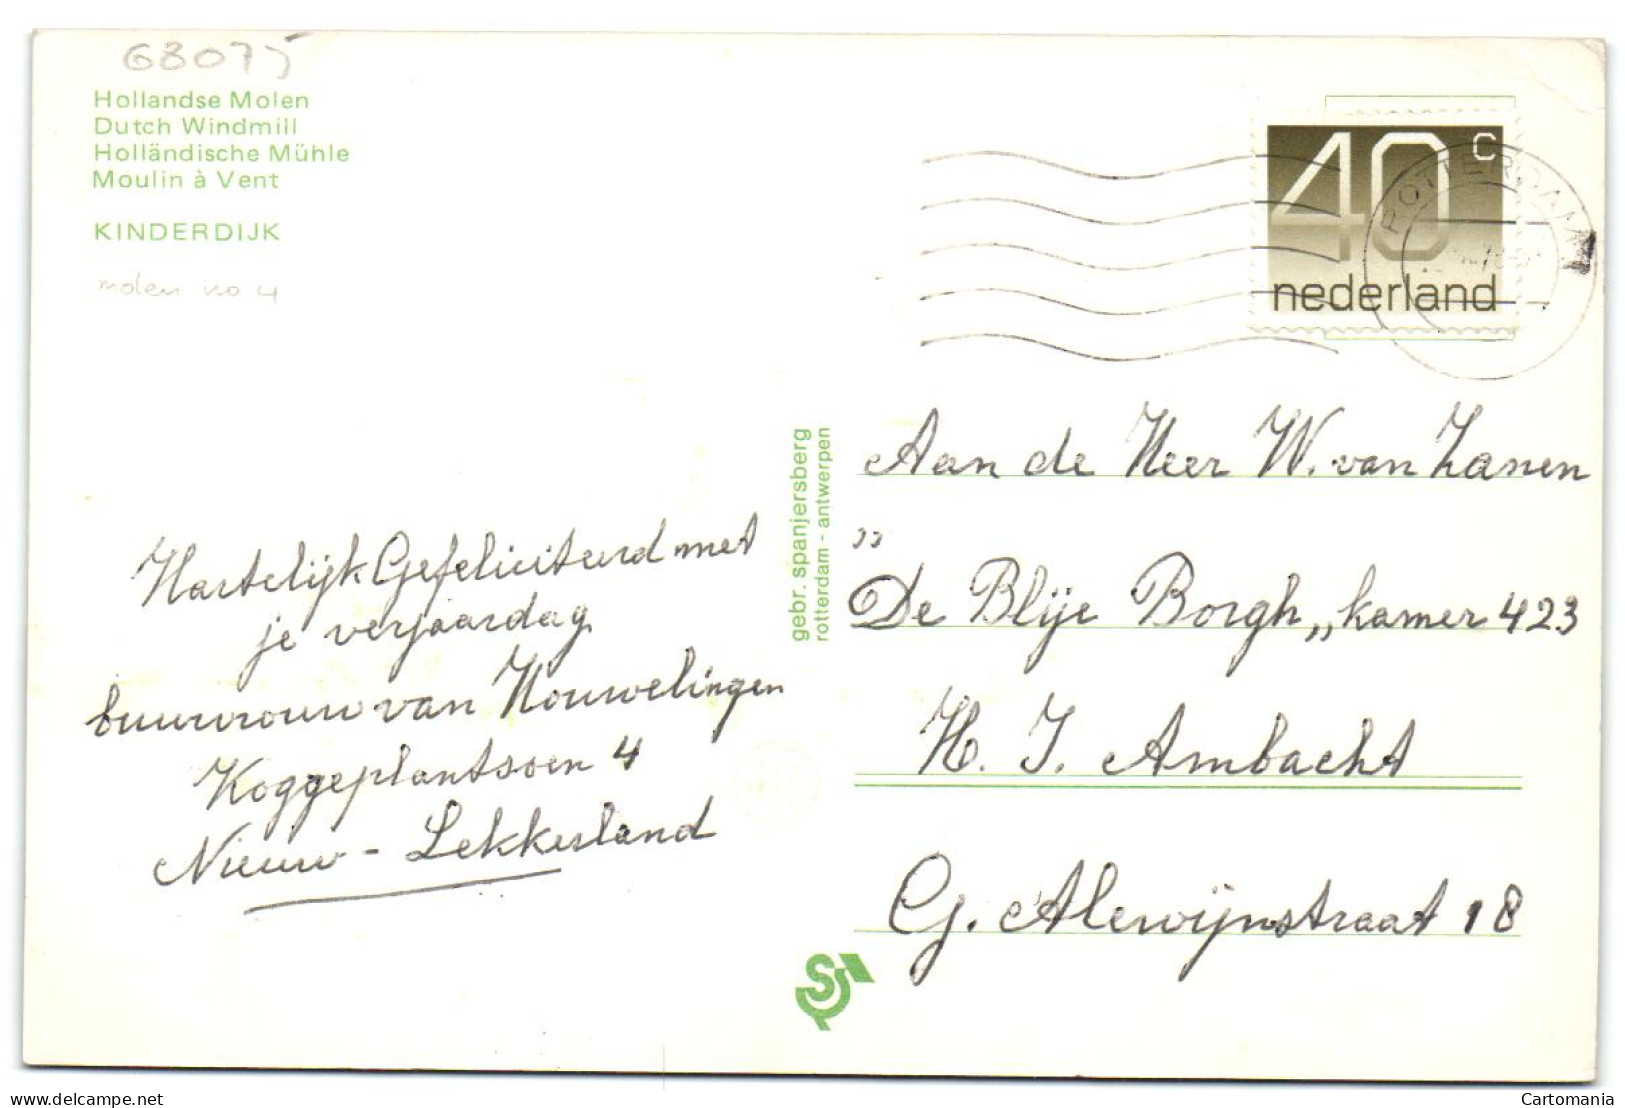 68075
Hollandse Molen
Dutch Windmill
Holländische Mühle
Moulin à Vent
KINDERDIJK
molen no 4
Hartelijk Gefeliciteerd met
je verjaardag
buurvrouw van Houwelingen
Koggeplantsoen 4
Nieuw - Lekkerland
gebr. spanjersberg
rotterdam - antwerpen
40c
nederland
ROTTERDAM
Aan de Heer W. van Zanen
"
De Blije Borgh,, kamer 423
H. I. Ambacht
G. Alewijnstraat 18
S
Cartomania